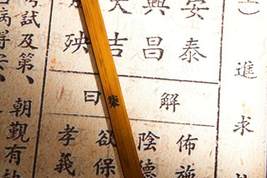 進求
安泰
興昌
吉
殃
解曰
佈施
陰德
欲保
孝義
試及第、
朝覲有
病得安